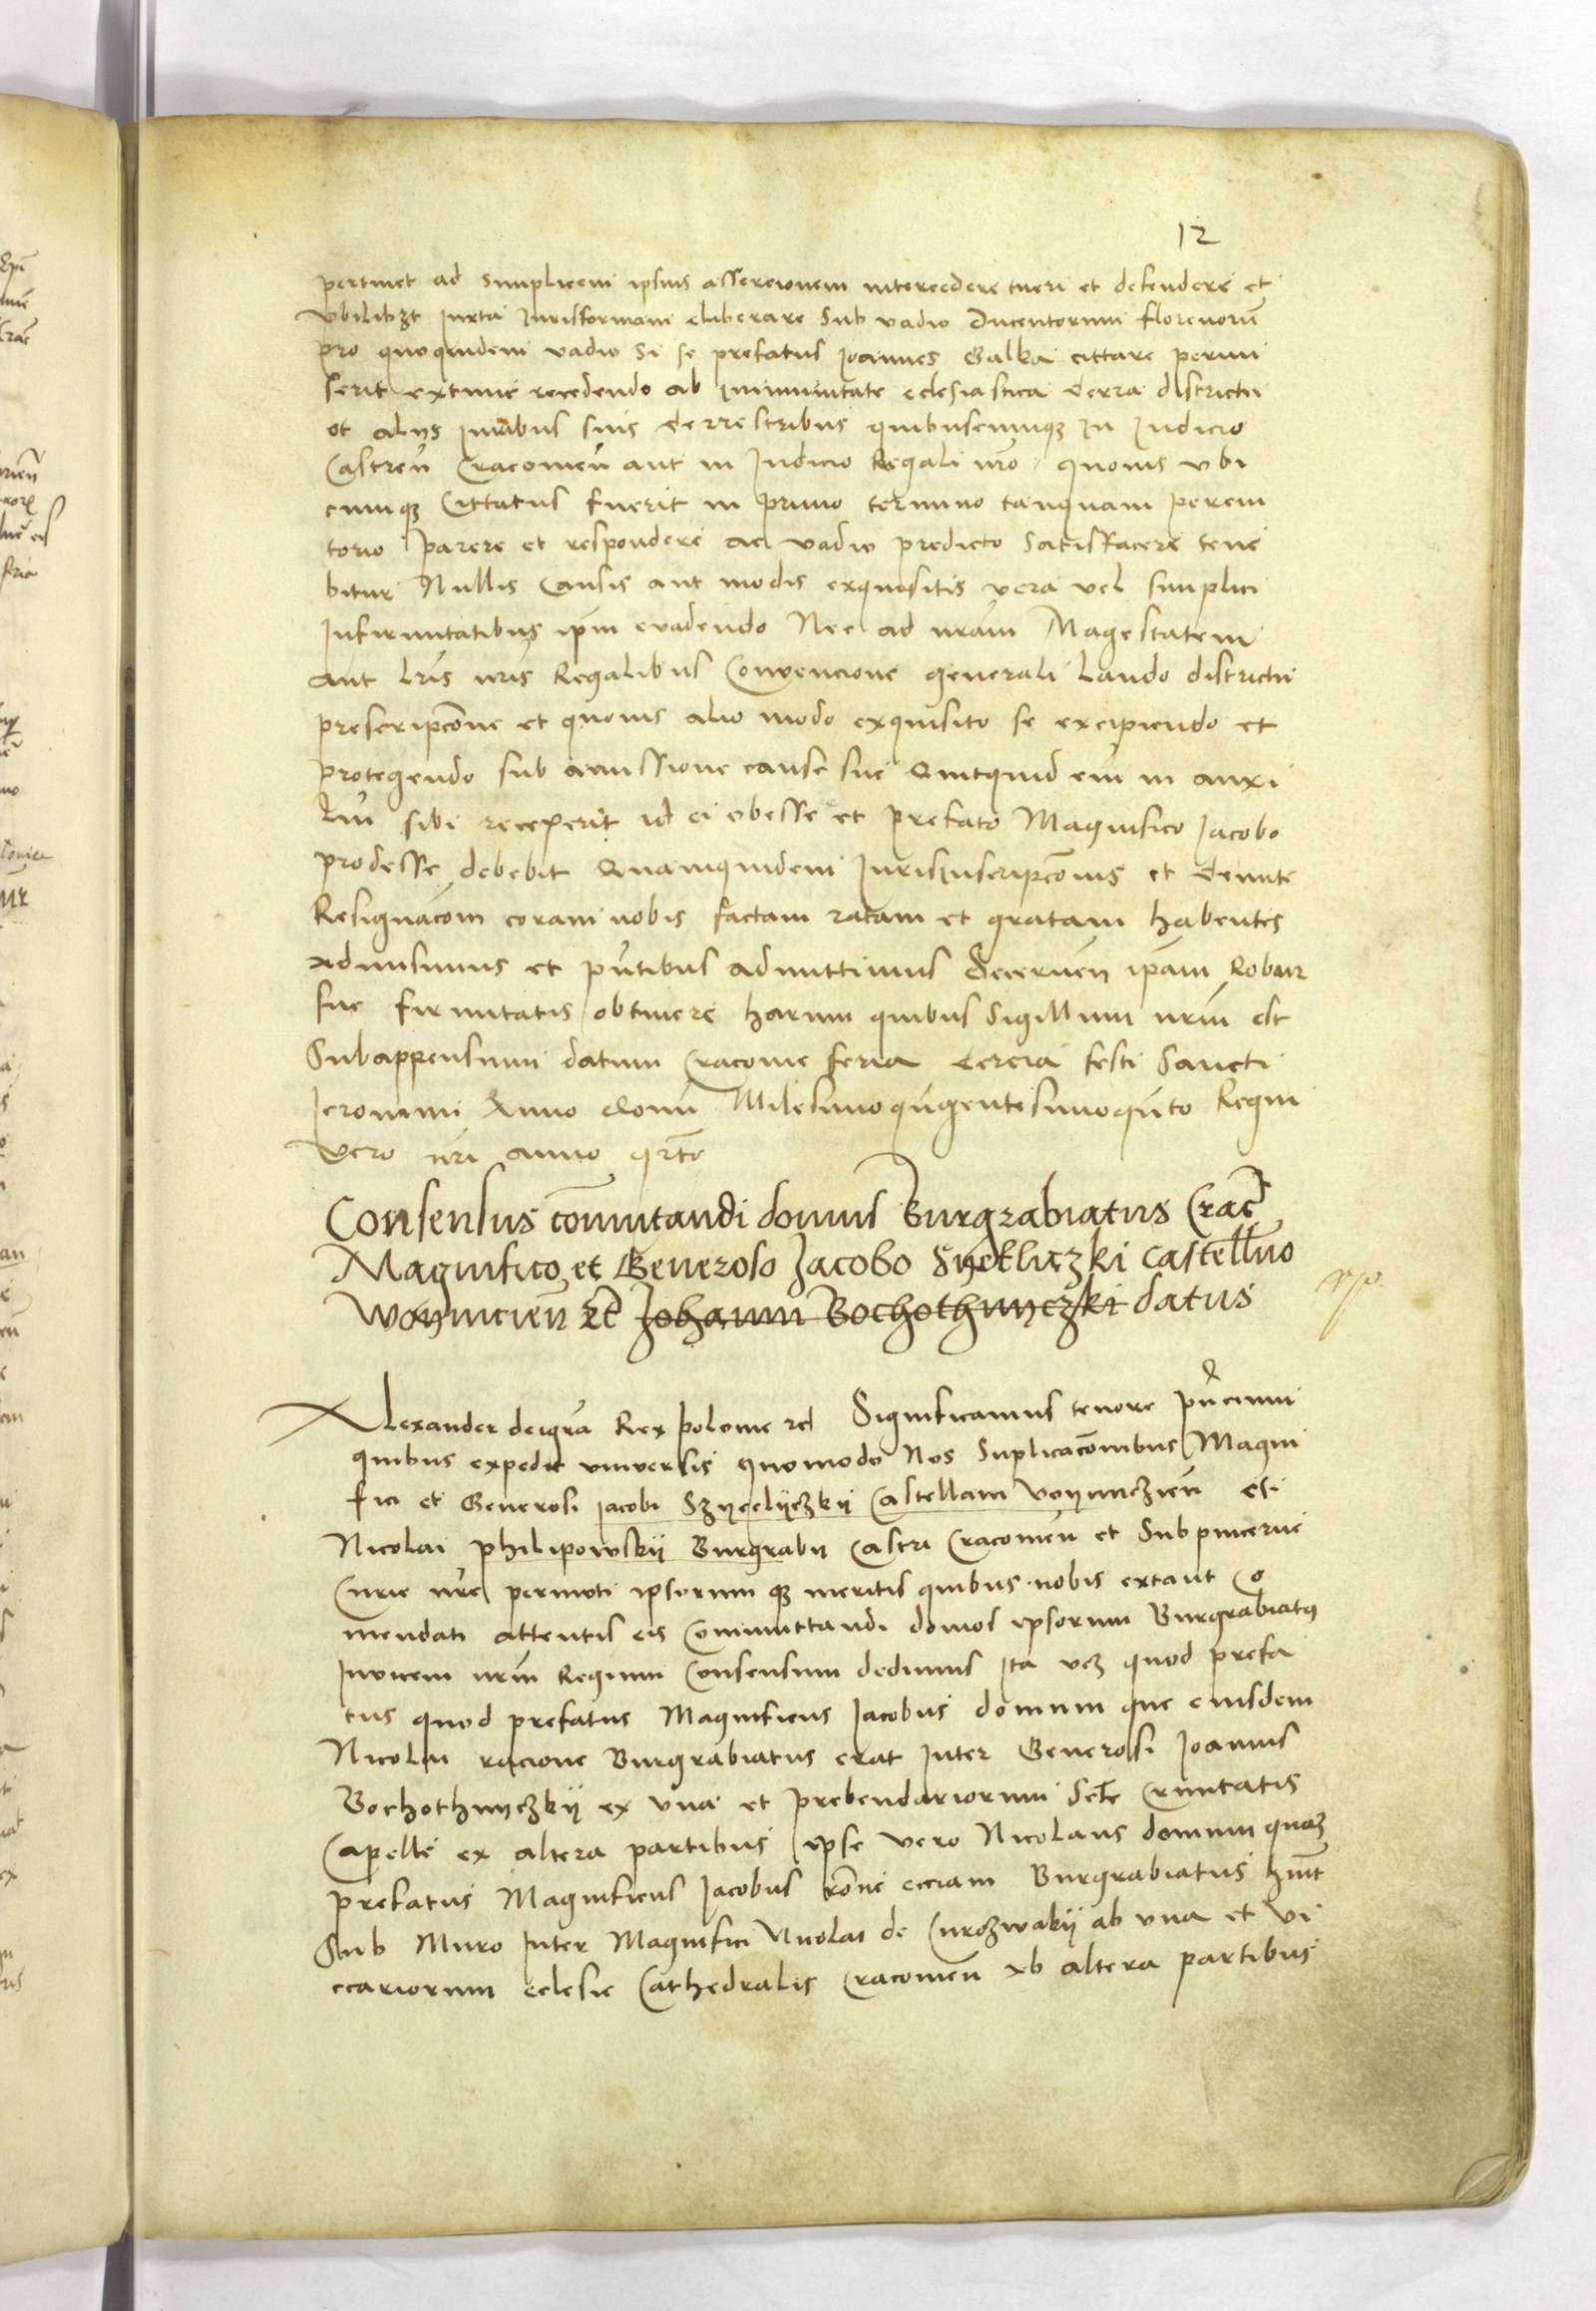 12
pertinet ad simplicem ipsius assercionem intercedere tueri et defendere et
vbilibzt iuxta Iurisformam eliberare Sub vadio Ducentorum florenorū
pro quoquidem vadio Si se prefatus Ioannes Galka cittare permi
serit extunc recedendo ab immunitate eclesiastica terra districtu
et alys Iuribus suis terrestribus quibuscumqz In Iudicio
Castreñ Cracouieñ aut in Iudicio Regali nrō quouis vbi
cumqz Cittatus fuerit in primo termino tanquam perem
torio parere et respondere ac vadio predicto Satisfacere tene
bitur Nullis Causis aut modis exquisitis vera vel simplici
Infirmitatibus ipm̄ euadendo Nec ad nrām Magestatem
aut lrīs nrīs Regalibus Convencione generali laudo districtu
prescripcōne et quouis alio modo exquisito se excipiendo et
protegendo sub amissione cause sue Quitquid em̄ in auxi
liū sibi receperit id ei obesse et prefato Magnifico Iacobo
prodesse debebit Quamquidem Iurisinscripcōnis et
Resignacōm coram nobis factam ratam et gratam habentes
admisimus et pn̄tibus admittimus Decerneñ ipam̄ Robur
sue firmitatis obtinere harum quibus Sigillum nrm̄ est
Subappensum datum Cracouie feria tercia festi Sancti
Ieronimi Anno domī Milesimoqūgentesimoqūto Regni
vero nrī anno qrtō
Consensus cōmutandi domus Burgrabiatus Crac̄
Magnifico et Generoso Jacobo Syekliczki castellāno
woyniciēn Et̄ Johanni Bochothniczki datus
Alexander deigrā Rex polonie zc̄ Significamus tenore pn̄cium
quibus expedit vniuersis quomodo Nos Suplicacōnibus Magni
fici et Generosi Iacobi Szyeclyczkÿ Castellani voyniczieñ et
Nicolai philipowskÿ Burgrabii Castri Cracouieñ et Subpincerne
Curie nrē permoti ipsorum qz meritis quibus nobis extant Co
mendati attentis eis Commuttandi domos ipsorum Burgrabiatus
Inuicem nrm̄ Regium Consensum dedimus Ita vcz quod prefa
tus quod prefatus Magnificus Iacobus domum que eiusdem
Nicolai racione Burgrabiatus erat Inter Generosi Ioannis
Bochothnyczkÿ ex vna et prebendariorum Scte Trinitatis
Capelle ex altera partibus ipse vero Nicolaus domum quaz
prefatus Magnificus Iacobus rōne eciam Burgrabiatus hūit
Sub Muro Inter Magnifici Nicolai de Curozwakÿ ab vna et vi
ccariorum eclesie Cathedralis Cracouieñ ab altera partibus